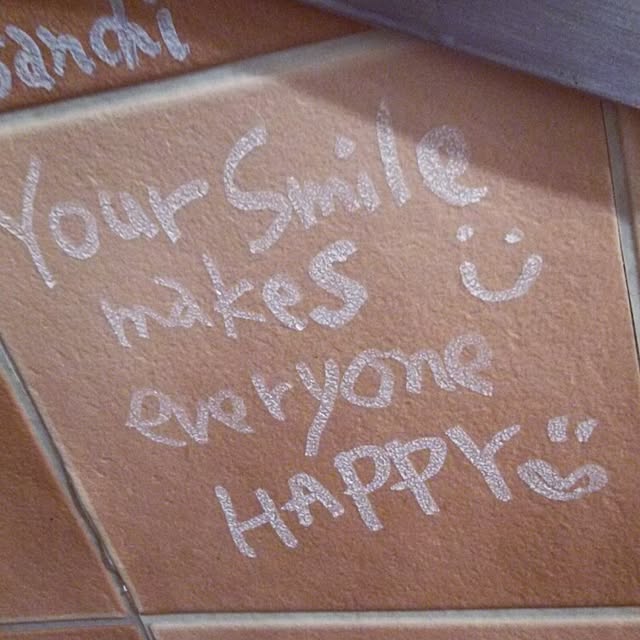 Your Smile
makes
everyone
HAPPY